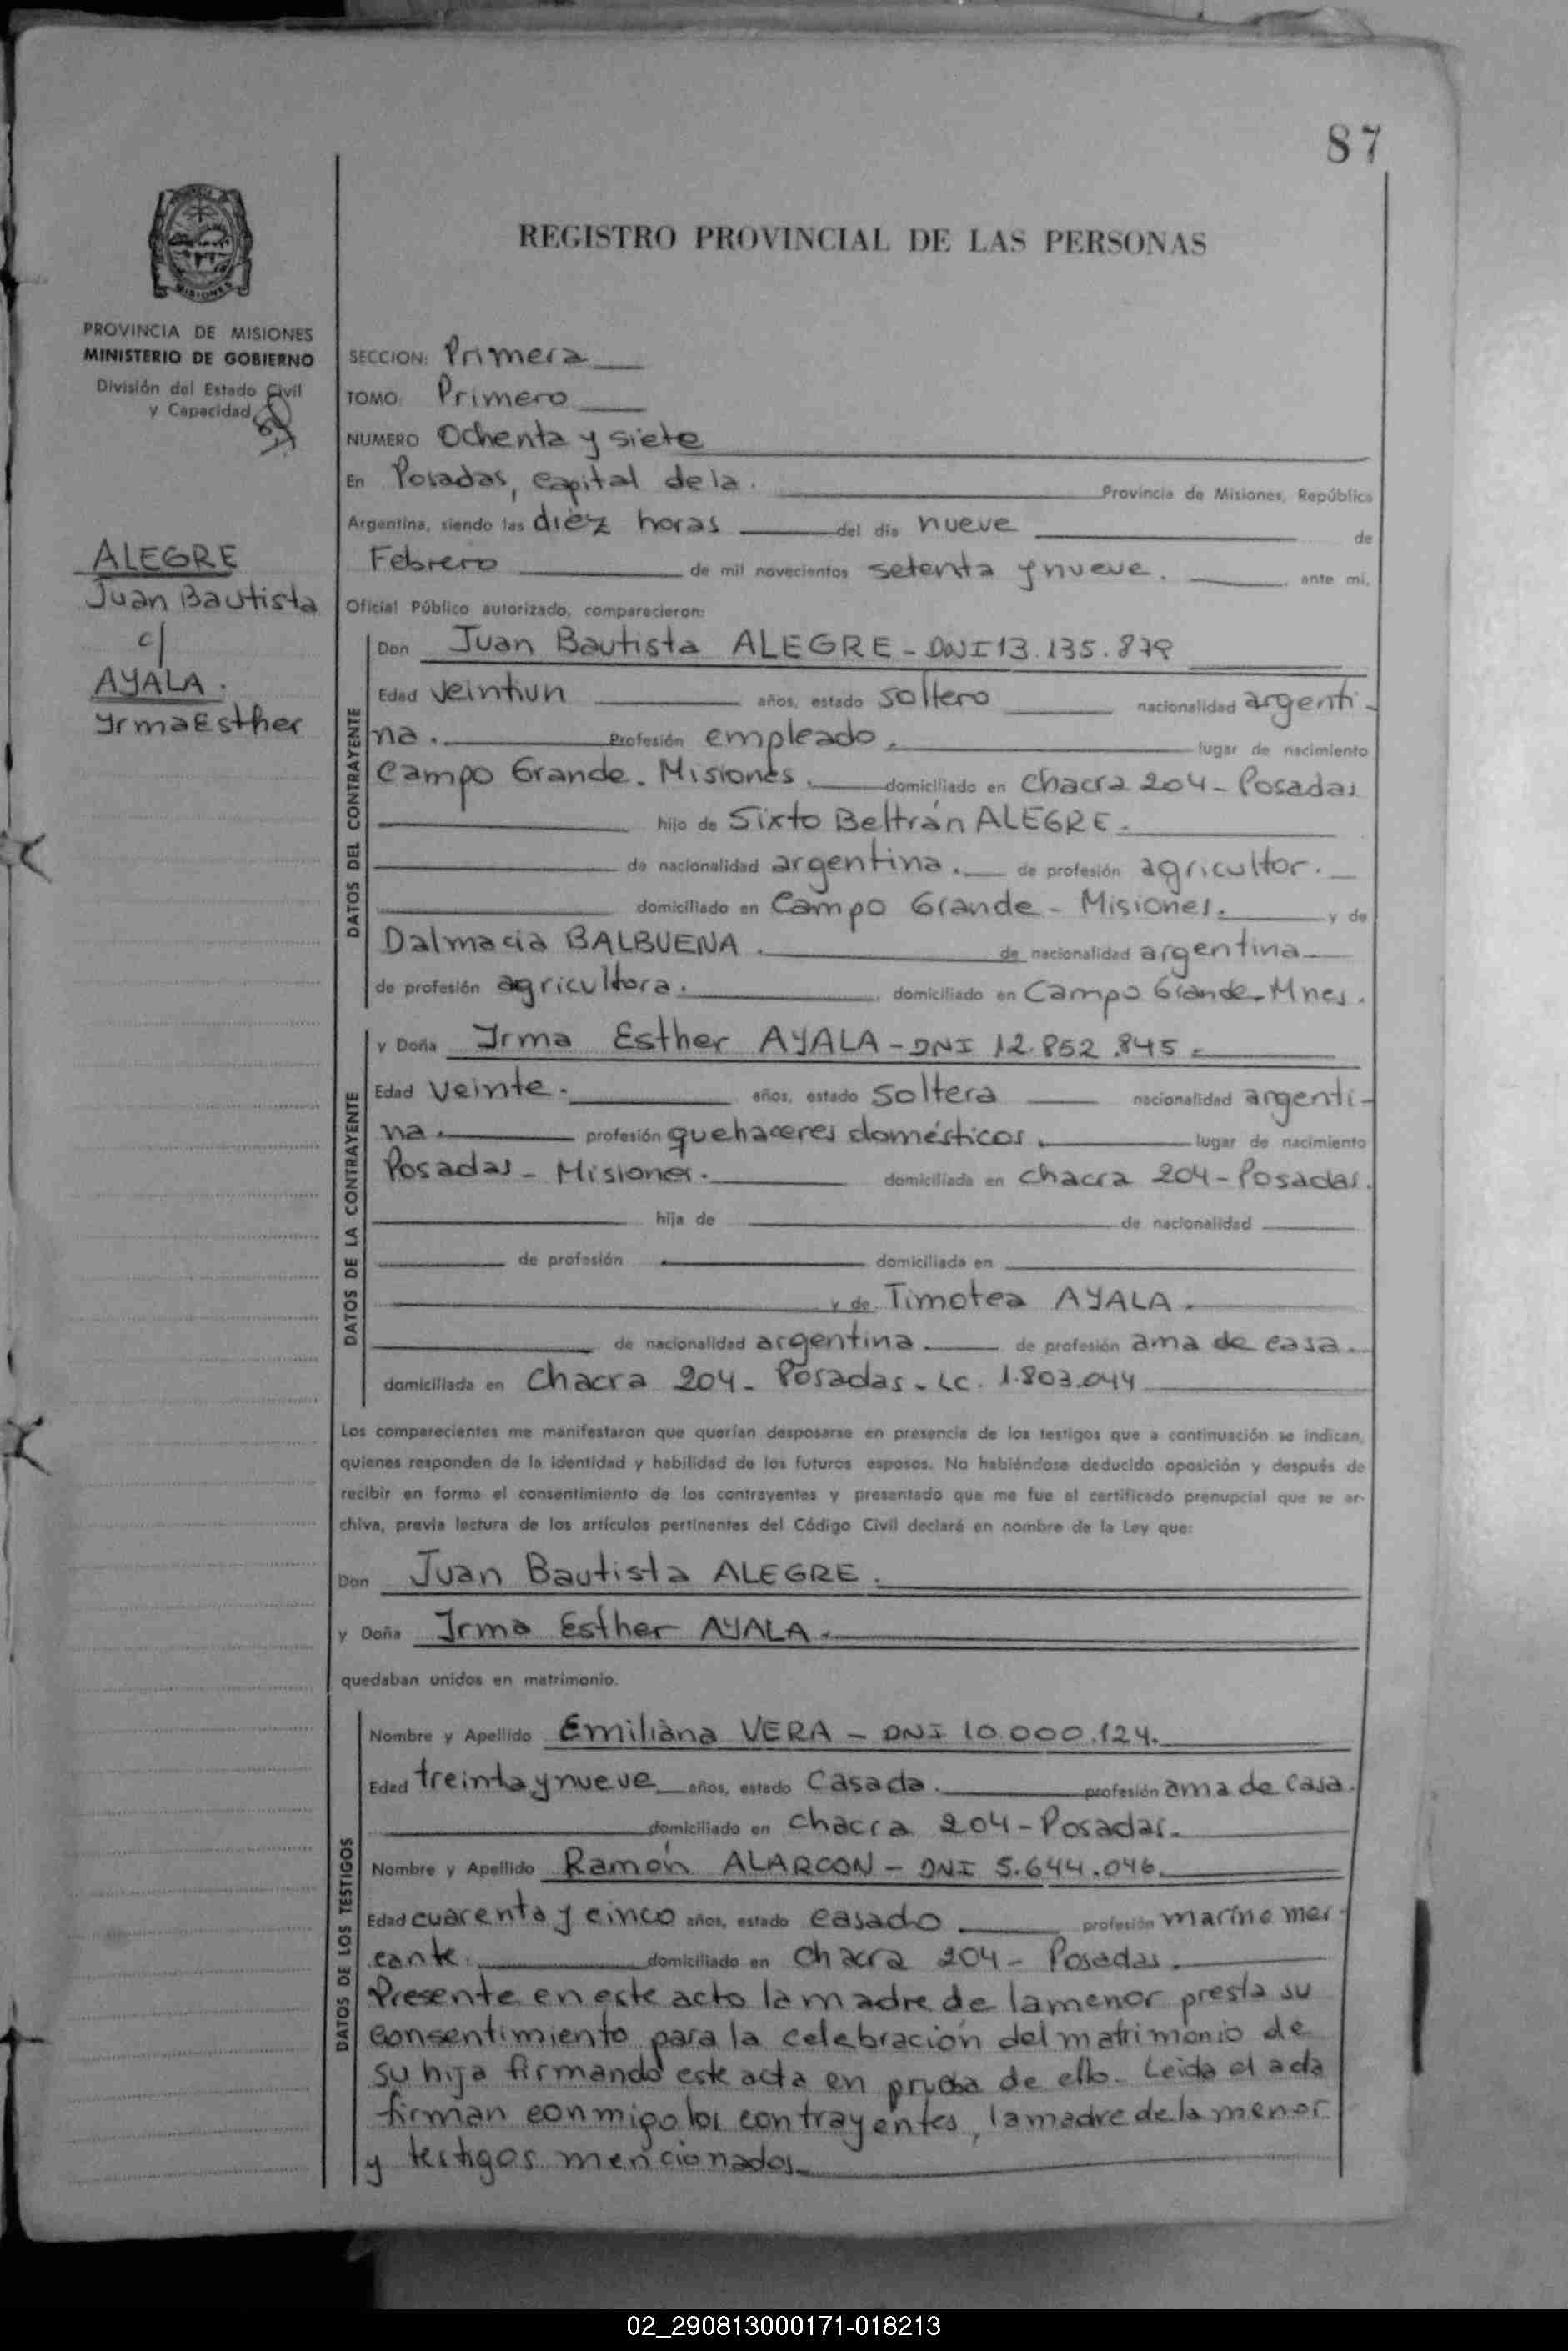 87
REGISTRO PROVINCIAL DE LAS PERSONAS
PROVINCIA DE MISIONES
MINISTERIO DE GOBIERNO
División del Estado Civil
y Capacidad
ALEGRE
Juan Bautista
c/
AYALA.
Yrma Esther
SECCION: Primera
TOMO: Primero
NUMERO Ochenta y siete
En Posadas, capital de la. Provincia de Misiones, República
Argentina, siendo las diez horas del día nueve de
Febrero de mil novecientos setenta y nueve. ante mi,
Oficial Público autorizado, comparecieron:
DATOS DEL CONTRAYENTE
Don Juan Bautista ALEGRE - DNI 13.135.879
Edad veintiun años, estado soltero nacionalidad argenti-
na. Profesión empleado. lugar de nacimiento
Campo Grande. Misiones. domiciliado en chacra 204 - Posadas
hijo de Sixto Beltrán ALEGRE.
de nacionalidad argentina. de profesión agricultor.
domiciliado en Campo Grande - Misiones. y de
Dalmacia BALBUENA. de nacionalidad argentina
de profesión agricultora. domiciliado en Campo Grande. Mnes.
DATOS DE LA CONTRAYENTE
y Doña Yrma Esther AYALA - DNI 12.852.845.
Edad veinte. años, estado soltera nacionalidad argenti-
na. profesión quehaceres domésticos. lugar de nacimiento
Posadas - Misiones. domiciliada en chacra 204 - Posadas.
hija de de nacionalidad
de profesión domiciliada en
y de Timotea AYALA.
de nacionalidad argentina. de profesión ama de casa.
domiciliada en Chacra 204 - Posadas - LC. 1.803.044
Los comparecientes me manifestaron que querían desposarse en presencia de los testigos que a continuación se indican,
quienes responden de la identidad y habilidad de los futuros esposos. No habiéndose deducido oposición y después de
recibir en forma el consentimiento de los contrayentes y presentado que me fue el certificado prenupcial que se ar-
chiva, previa lectura de los artículos pertinentes del Código Civil declaré en nombre de la Ley que:
Don Juan Bautista ALEGRE.
y Doña Yrma Esther AYALA.
quedaban unidos en matrimonio.
DATOS DE LOS TESTIGOS
Nombre y Apellido Emiliana VERA - DNI 10.000.124.
Edad treinta y nueve años, estado casada. profesión ama de casa.
domiciliado en chacra 204 - Posadas.
Nombre y Apellido Ramón ALARCON - DNI 5.644.046.
Edad cuarenta y cinco años, estado casado profesión marino mer-
cante. domiciliado en chacra 204 - Posadas.
Presente en este acto la madre de la menor presta su
consentimiento para la celebración del matrimonio de
su hija firmando este acta en prueba de ello. Leida el acta
firman conmigo los contrayentes, la madre de la menor
y testigos mencionados
02_290813000171-018213